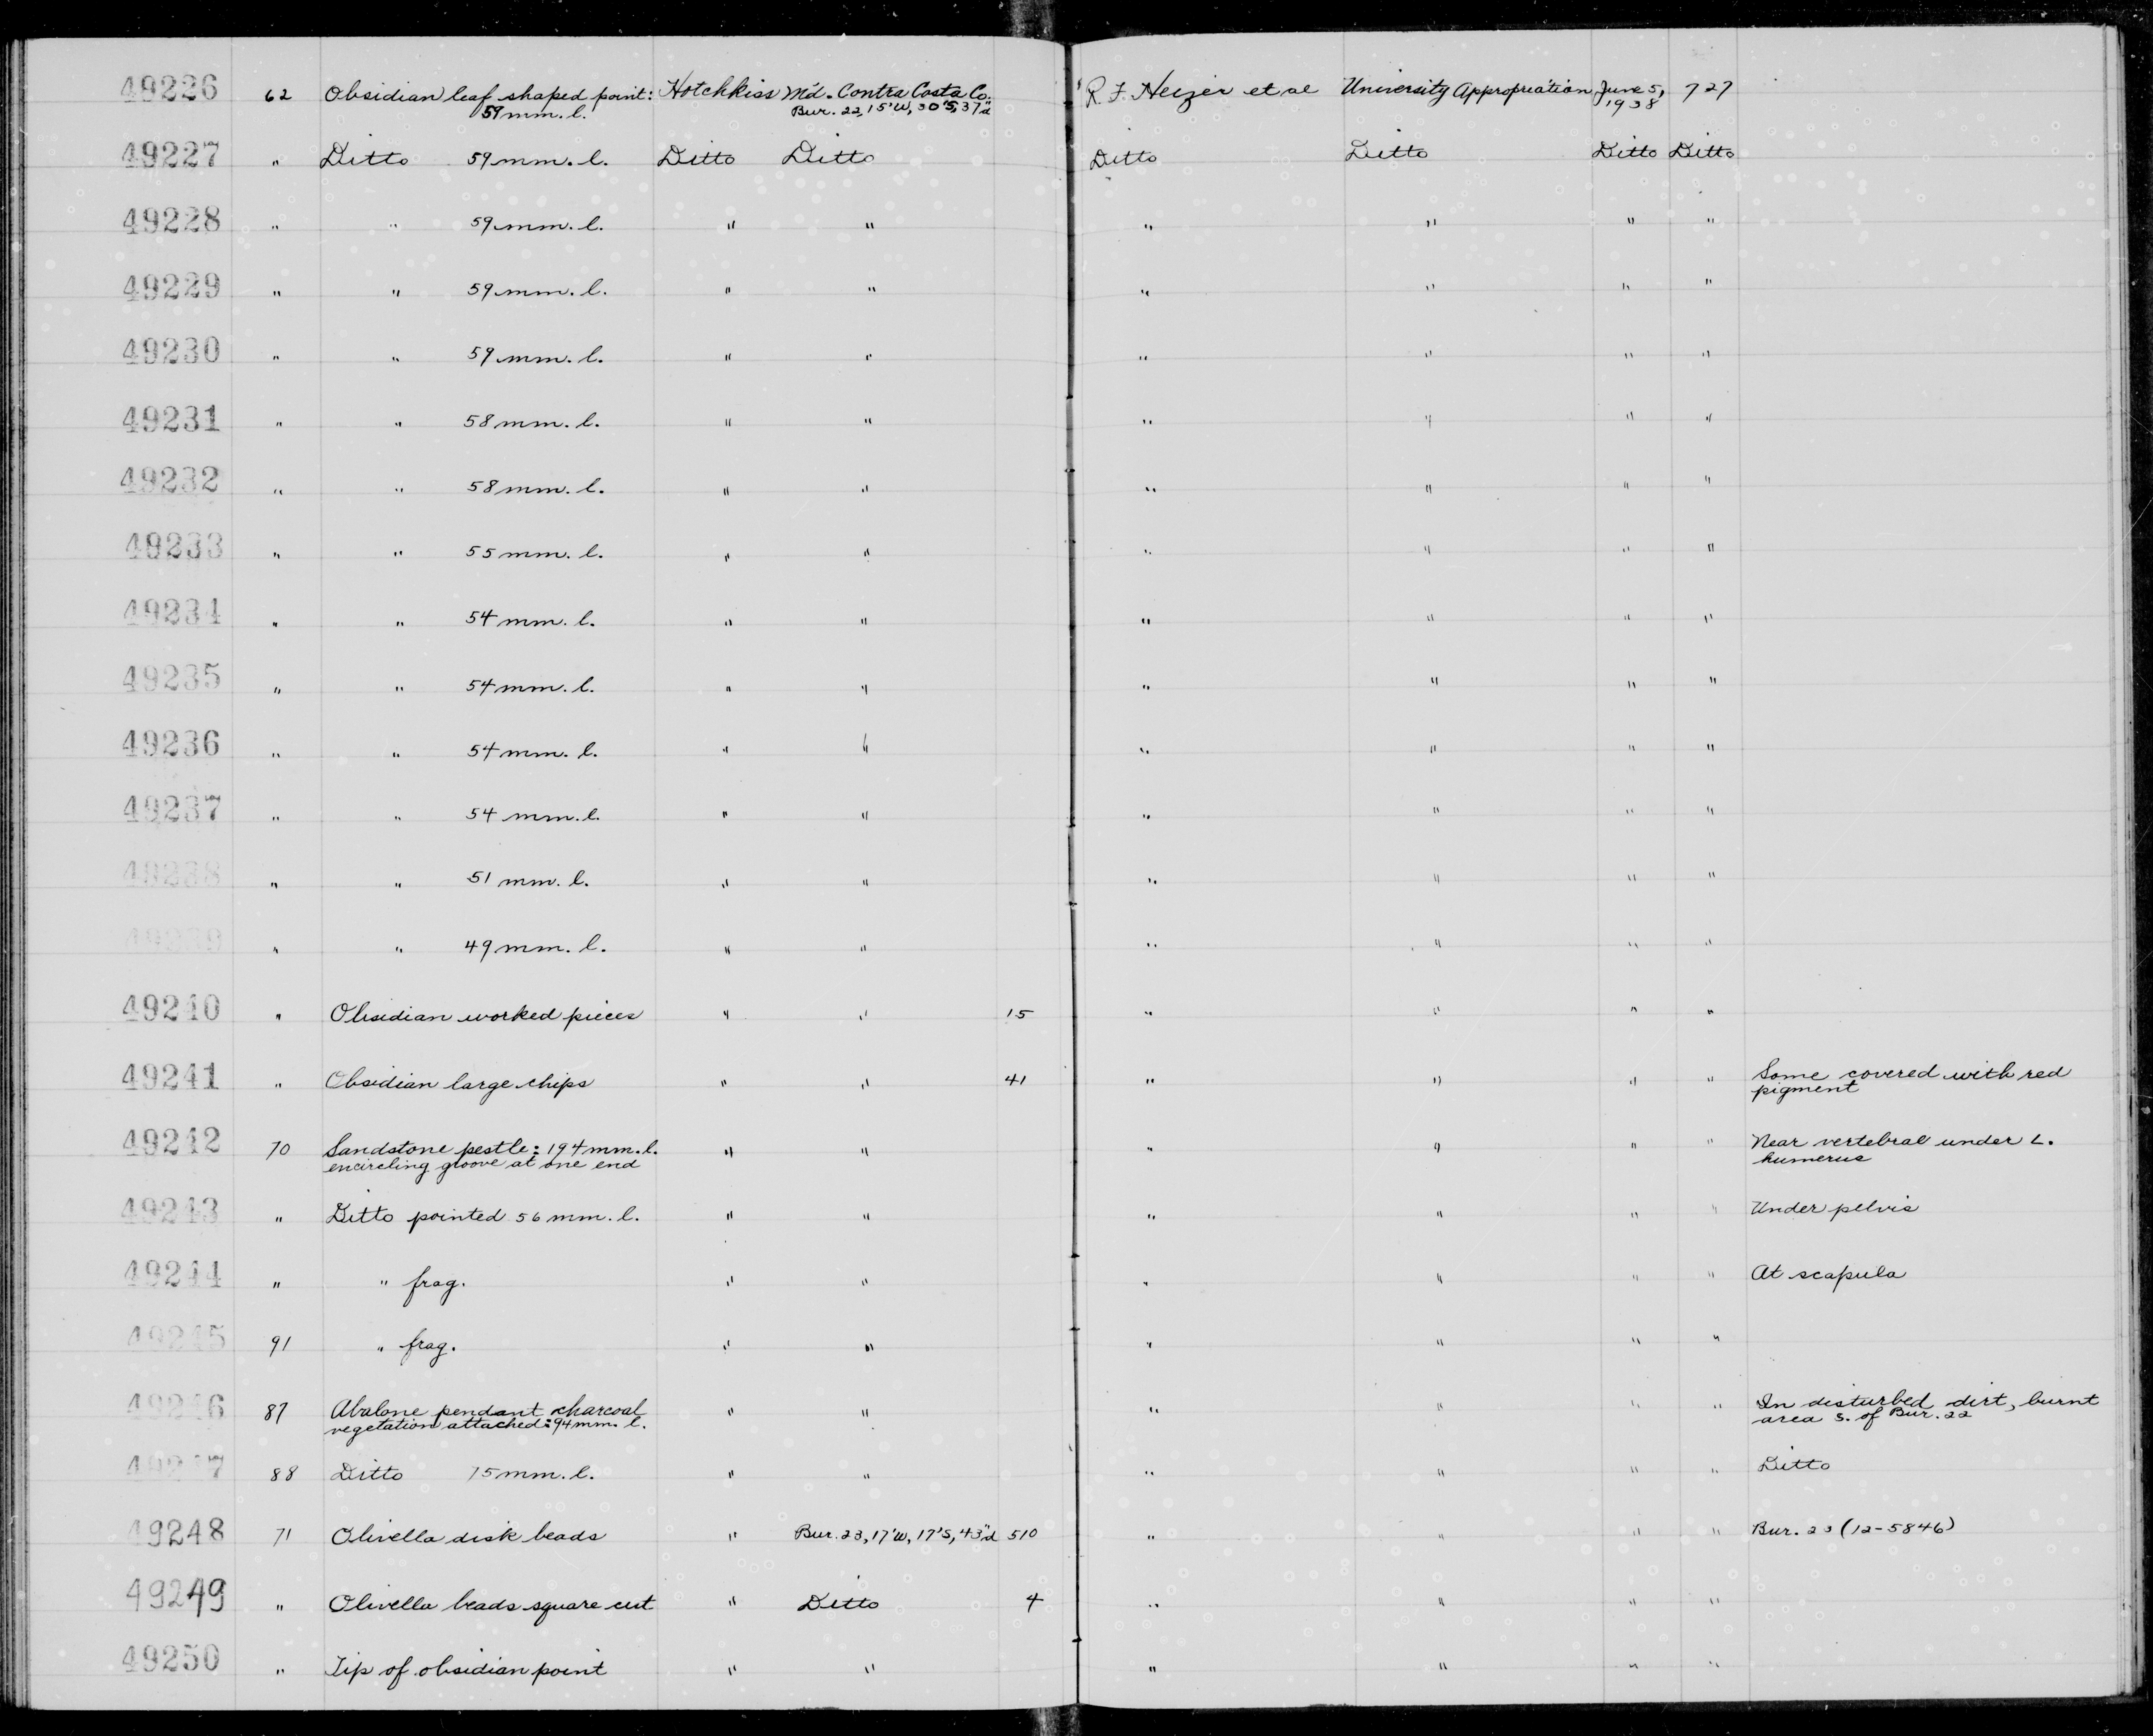 49226 62 Obsidian leaf shaped point: Hotchkiss Md. Contra Costa Co. R. F. Heizer et al University Appropriation June 5, 727
59 mm. l. Bur. 22, 15'W, 30'S, 37"d 1938
49227 " Ditto 59 mm. l. Ditto Ditto Ditto Ditto Ditto Ditto
49228 " " 59 mm. l. " " " " " "
49229 " " 59 mm. l. " " " " " "
49230 " " 59 mm. l. " " " " " "
49231 " " 58 mm. l. " " " " " "
49232 " " 58 mm. l. " " " " " "
49233 " " 55 mm. l. " " " " " "
49234 " " 54 mm. l. " " " " " "
49235 " " 54 mm. l. " " " " " "
49236 " " 54 mm. l. " " " " " "
49237 " " 54 mm. l. " " " " " "
49238 " " 51 mm. l. " " " " " "
49239 " " 49 mm. l. " " " " " "
49240 " Obsidian worked pieces " " 15 " " " "
49241 " Obsidian large chips " " 41 " " " " Some covered with red
pigment
49242 70 Sandstone pestle: 194 mm. l. " " " " " " Near vertebral under L.
encircling groove at one end humerus
49243 " Ditto pointed 56 mm. l. " " " " " " Under pelvis
49244 " " frag. " " " " " " At scapula
49245 91 " frag. " " " " " "
49246 87 Abalone pendant charcoal " " " " " " In disturbed dirt, burnt
vegetation attached: 94 mm. l. area S. of Bur. 22
49247 88 Ditto 75 mm. l. " " " " " " Ditto
49248 71 Olivella disk beads " Bur. 23, 17'W, 17'S, 43"d 510 " " " " Bur. 23 (12-5846)
49249 " Olivella beads square cut " Ditto 4 " " " "
49250 " Tip of obsidian point " " " " " "